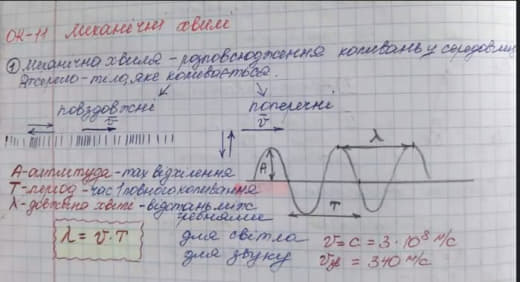 ОК-11 Механічні хвилі
① Механічна хвиля - розповсюдження коливань у середовищі
Джерело - тіло, яке коливається.
повздовжні поперечні
v̅ v̅
A λ
T
A - амплітуда - max відхилення
T - період - час 1 повного коливання
λ - довжина хвилі - відстань між
гребнями
λ = v · T
для світла v = c = 3 · 10⁸ м/с
для звуку v зв = 340 м/с